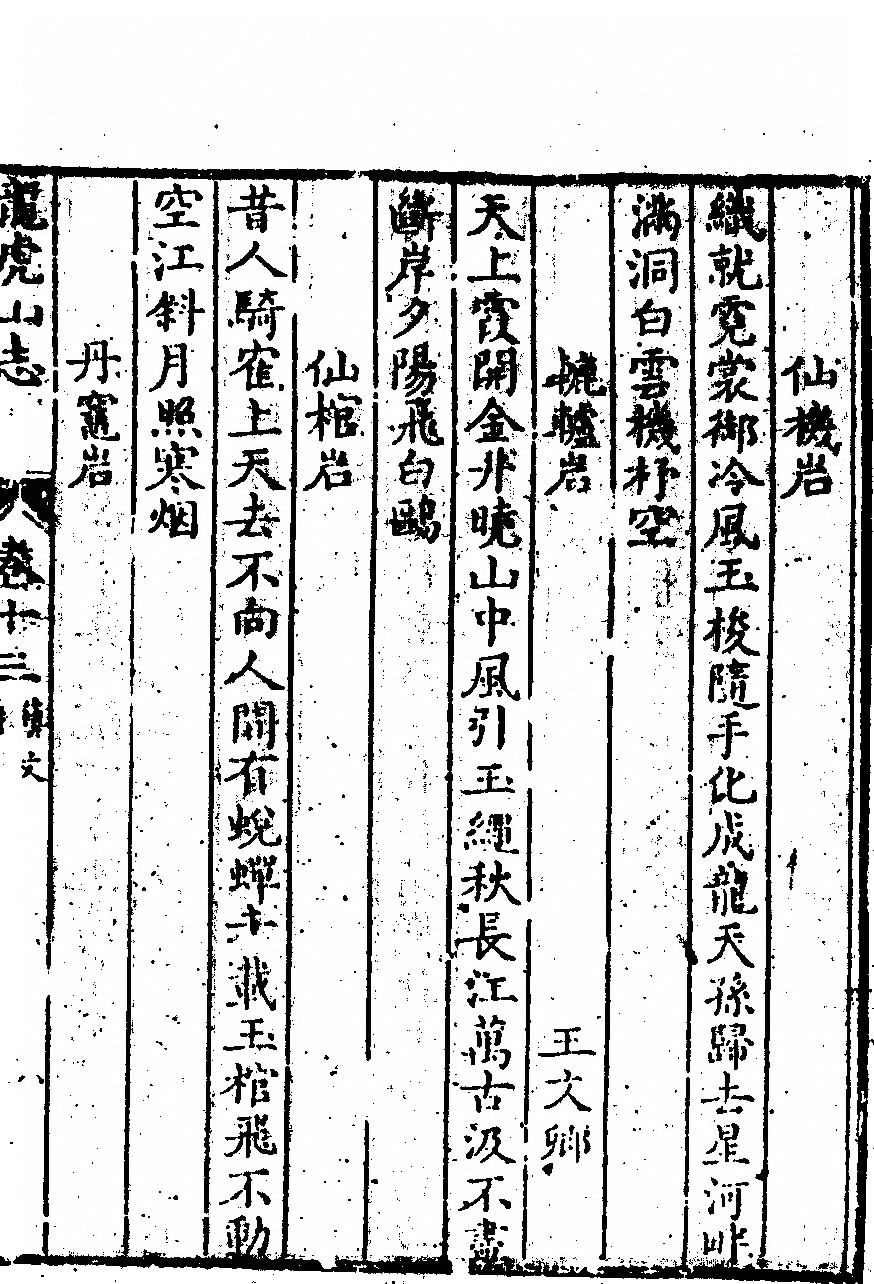 仙機岩
織就霓裳御冷風玉梭隨手化成龍天孫歸去星河畔
滿洞白雲機杼空
轆轤岩 王文卿
天上霞開金井曉山中風引玉繩秋長江萬古汲不盡
斷岸夕陽飛白鷗
仙棺岩
昔人騎隺上天去不向人間有蛻蟬千載玉棺飛不動
空江斜月照寒烟
丹竈岩
龍虎山志 卷十三 文